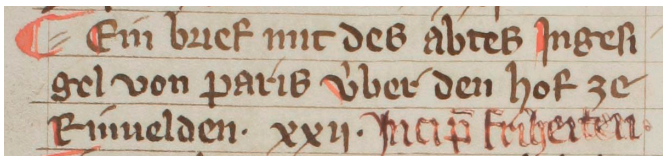 Ein brief mit des abtes Ingesi
gel von paris vͤber den hof ze
Rinuelden · xxij · Incip̄ friheiten ·